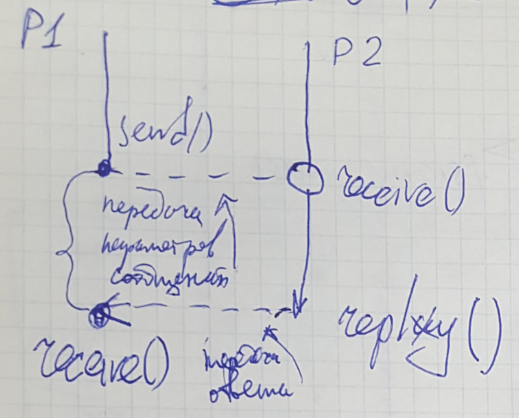 P1
P2
send()
receive()
передача
параметров
сообщения
reply()
receive()
передача
ответа